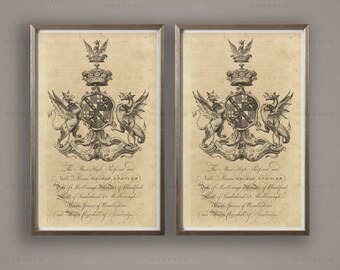 The Most High, Puissant and
Noble Prince GEORGE SPENCER
Duke of Marlborough, Marquis of Blandford
Earl of Sunderland & Marlborough
Baron Spencer of Wormleighton
and Baron Churchill of Sandridge
The Most High, Puissant and
Noble Prince GEORGE SPENCER
Duke of Marlborough, Marquis of Blandford
Earl of Sunderland & Marlborough
Baron Spencer of Wormleighton
and Baron Churchill of Sandridge